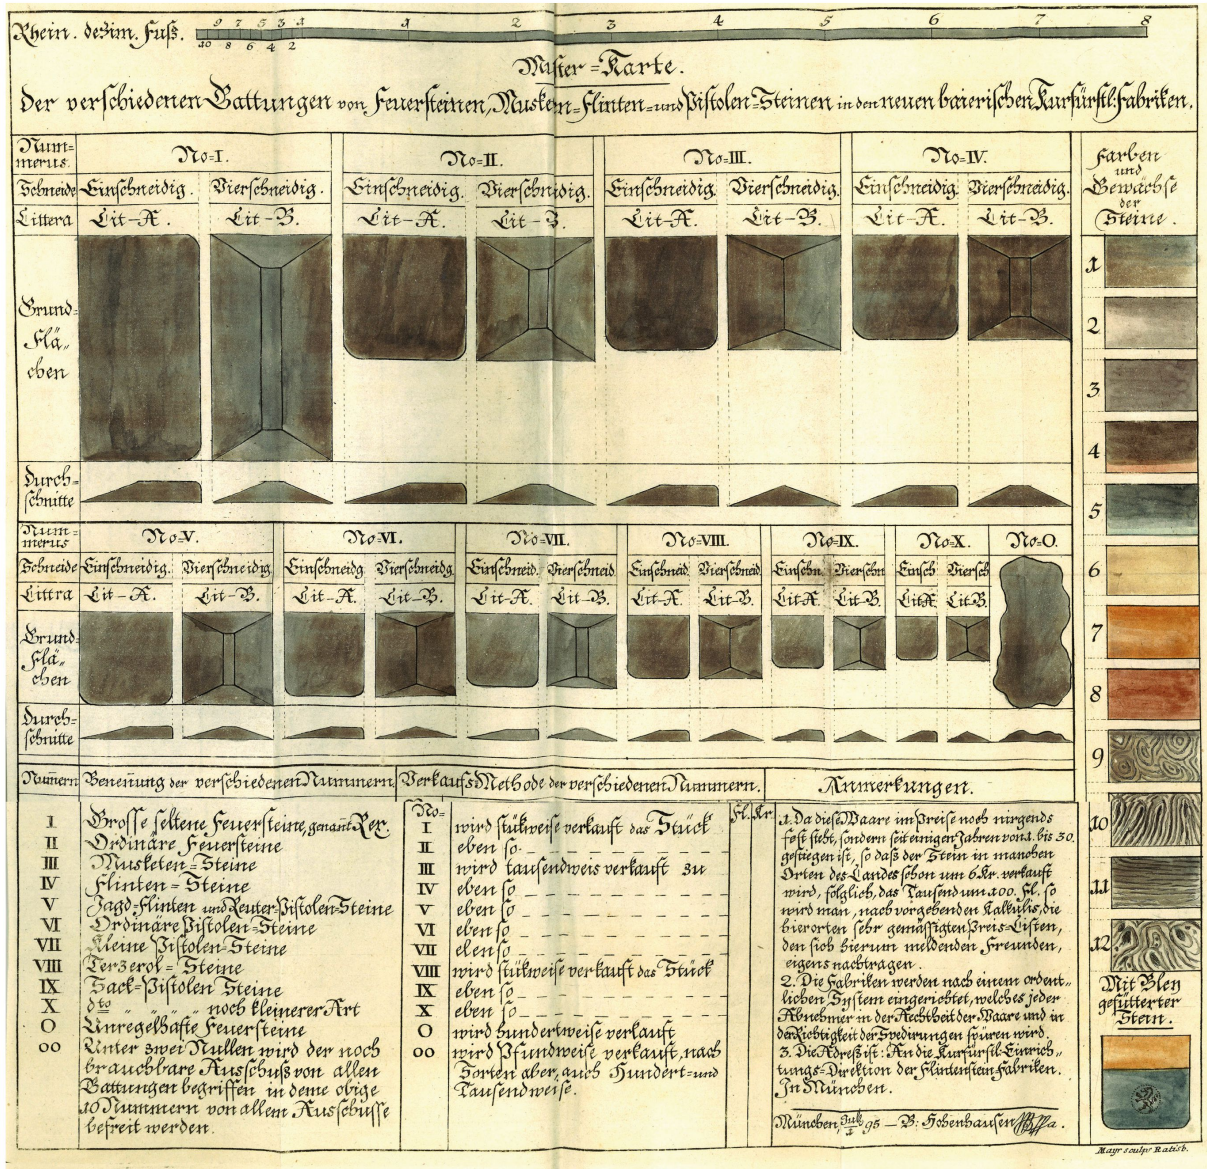 Rhein. dezim. Fuß.
9 7 5 3 1 1 2 3 4 5 6 7 8
10 8 6 4 2
Muster=Karte.
Der verschiedenen Gattungen von Feuersteinen, Musketen=Flinten=und Pistolen=Steinen in den neuen baierischen Kurfürstl: Fabriken.
Num=
merus.
No=I. No=II. No=III. No=IV.
Schneide Einschneidig. Vierschneidig. Einschneidig. Vierschneidig Einschneidig Vierschneidig. Einschneidig Vierschneidig.
Littera Lit=A. Lit=B. Lit=A. Lit=B. Lit=A. Lit=B. Lit=A. Lit=B.
Grund=
Flä„
chen
Durch=
schnitte
Farben
und
Gewächse
der
Steine.
1
2
3
4
5
6
7
8
9
10
11
12
Mit Bley
gefütterter
Stein.
Num=
merus
No=V. No=VI. No=VII. No=VIII. No=IX. No=X. No=O.
Schneide Einschneidig. Vierschneidig. Einschneidg Vierschneidg. Einschneid. Vierschneid. Einschneid Vierschneid Einschn. Vierschn Einsch Viersch
Littra Lit=A. Lit=B. Lit=A. Lit=B. Lit=A. Lit=B. Lit=A. Lit=B. Lit=A. Lit=B. Lit=A. Lit=B.
Grund=
Flä=
chen
Durch=
schnitte
Num̄ern Benen̄ung der verschiedenen Nummern.
I Grosse seltene Feuersteine, genannt Rex.
II Ordinäre Feuersteine
III Musketen=Steine
IV Flinten=Steine
V Jagd=Flinten und Reuter=Pistolen=Steine
VI Ordinäre Pistolen=Steine
VII Kleine Pistolen=Steine
VIII Terzerol=Steine
IX Sack=Pistolen Steine
X dto „ „ „ noch kleinerer Art
O Unregelhafte Feuersteine
OO Unter zwei Nullen wird der noch
brauchbare Ausschuß von allen
Gattungen begriffen in deme obige
10 Nummern von allem Ausschusse
befreit werden.
Verkaufs=Methode der verschiedenen Nummern.
No= Fl. Kr.
I wird stükweise verkauft das Stück
II eben so
III wird tausendweis verkauft zu
IV eben so
V eben so
VI eben so
VII eben so
VIII wird stükweise verkauft das Stück
IX eben so
X eben so
O wird hundertweise verkauft
OO wird Pfundweise verkauft, nach
Sorten aber, auch Hundert=und
Tausendweise.
Anmerkungen.
1. Da diese Waare im Preise noch nirgends
fest steht, sondern seit einigen Jahren von 1. bis 30.
gestiegen ist, so daß der Stein in manchen
Orten des Landes schon um 6 Kr. verkauft
wird, folglich, das Tausend um 100. Fl. so
wird man, nach vorgehenden Kalkulis, die
hierorten sehr gemäßigten Preis=Listen,
den sich hierum meldenden Freunden,
eigens nachtragen.
2. Die Fabriken werden nach einem ordent„
lichen System eingerichtet, welches jeder
Abnehmer in der Aechtheit der Waare und in
der Richtigkeit der Spedirungen spüren wird.
3. Die Adreß ist: An die Kurfürstl=Einrich„
tungs=Direktion der Flintenstein Fabriken.
In München.
München, 95 — B: Hohenhausen
Mayr sculps Ratisb.